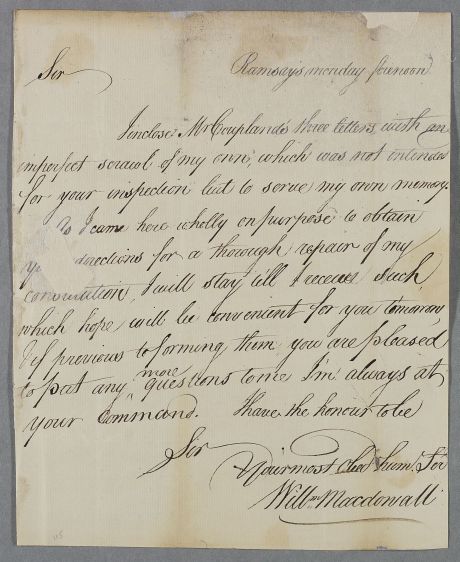 Ramsay's monday forenoon
Sir
I inclose Mr Coupland's three letters with an
imperfect scrawl of my own, which was not intended
for your inspection but to serve my own memory.
As I came here wholly on purpose to obtain
directions for a thorough repair of my
constitution, I will stay till I receive such,
which hope will be convenient for you tomorrow,
& if previous to forming them you are pleased
more
to put any questions to me I'm always at
your Command. I have the honour to be
Sir
Your most obed humb Ser
Willm Macdowall